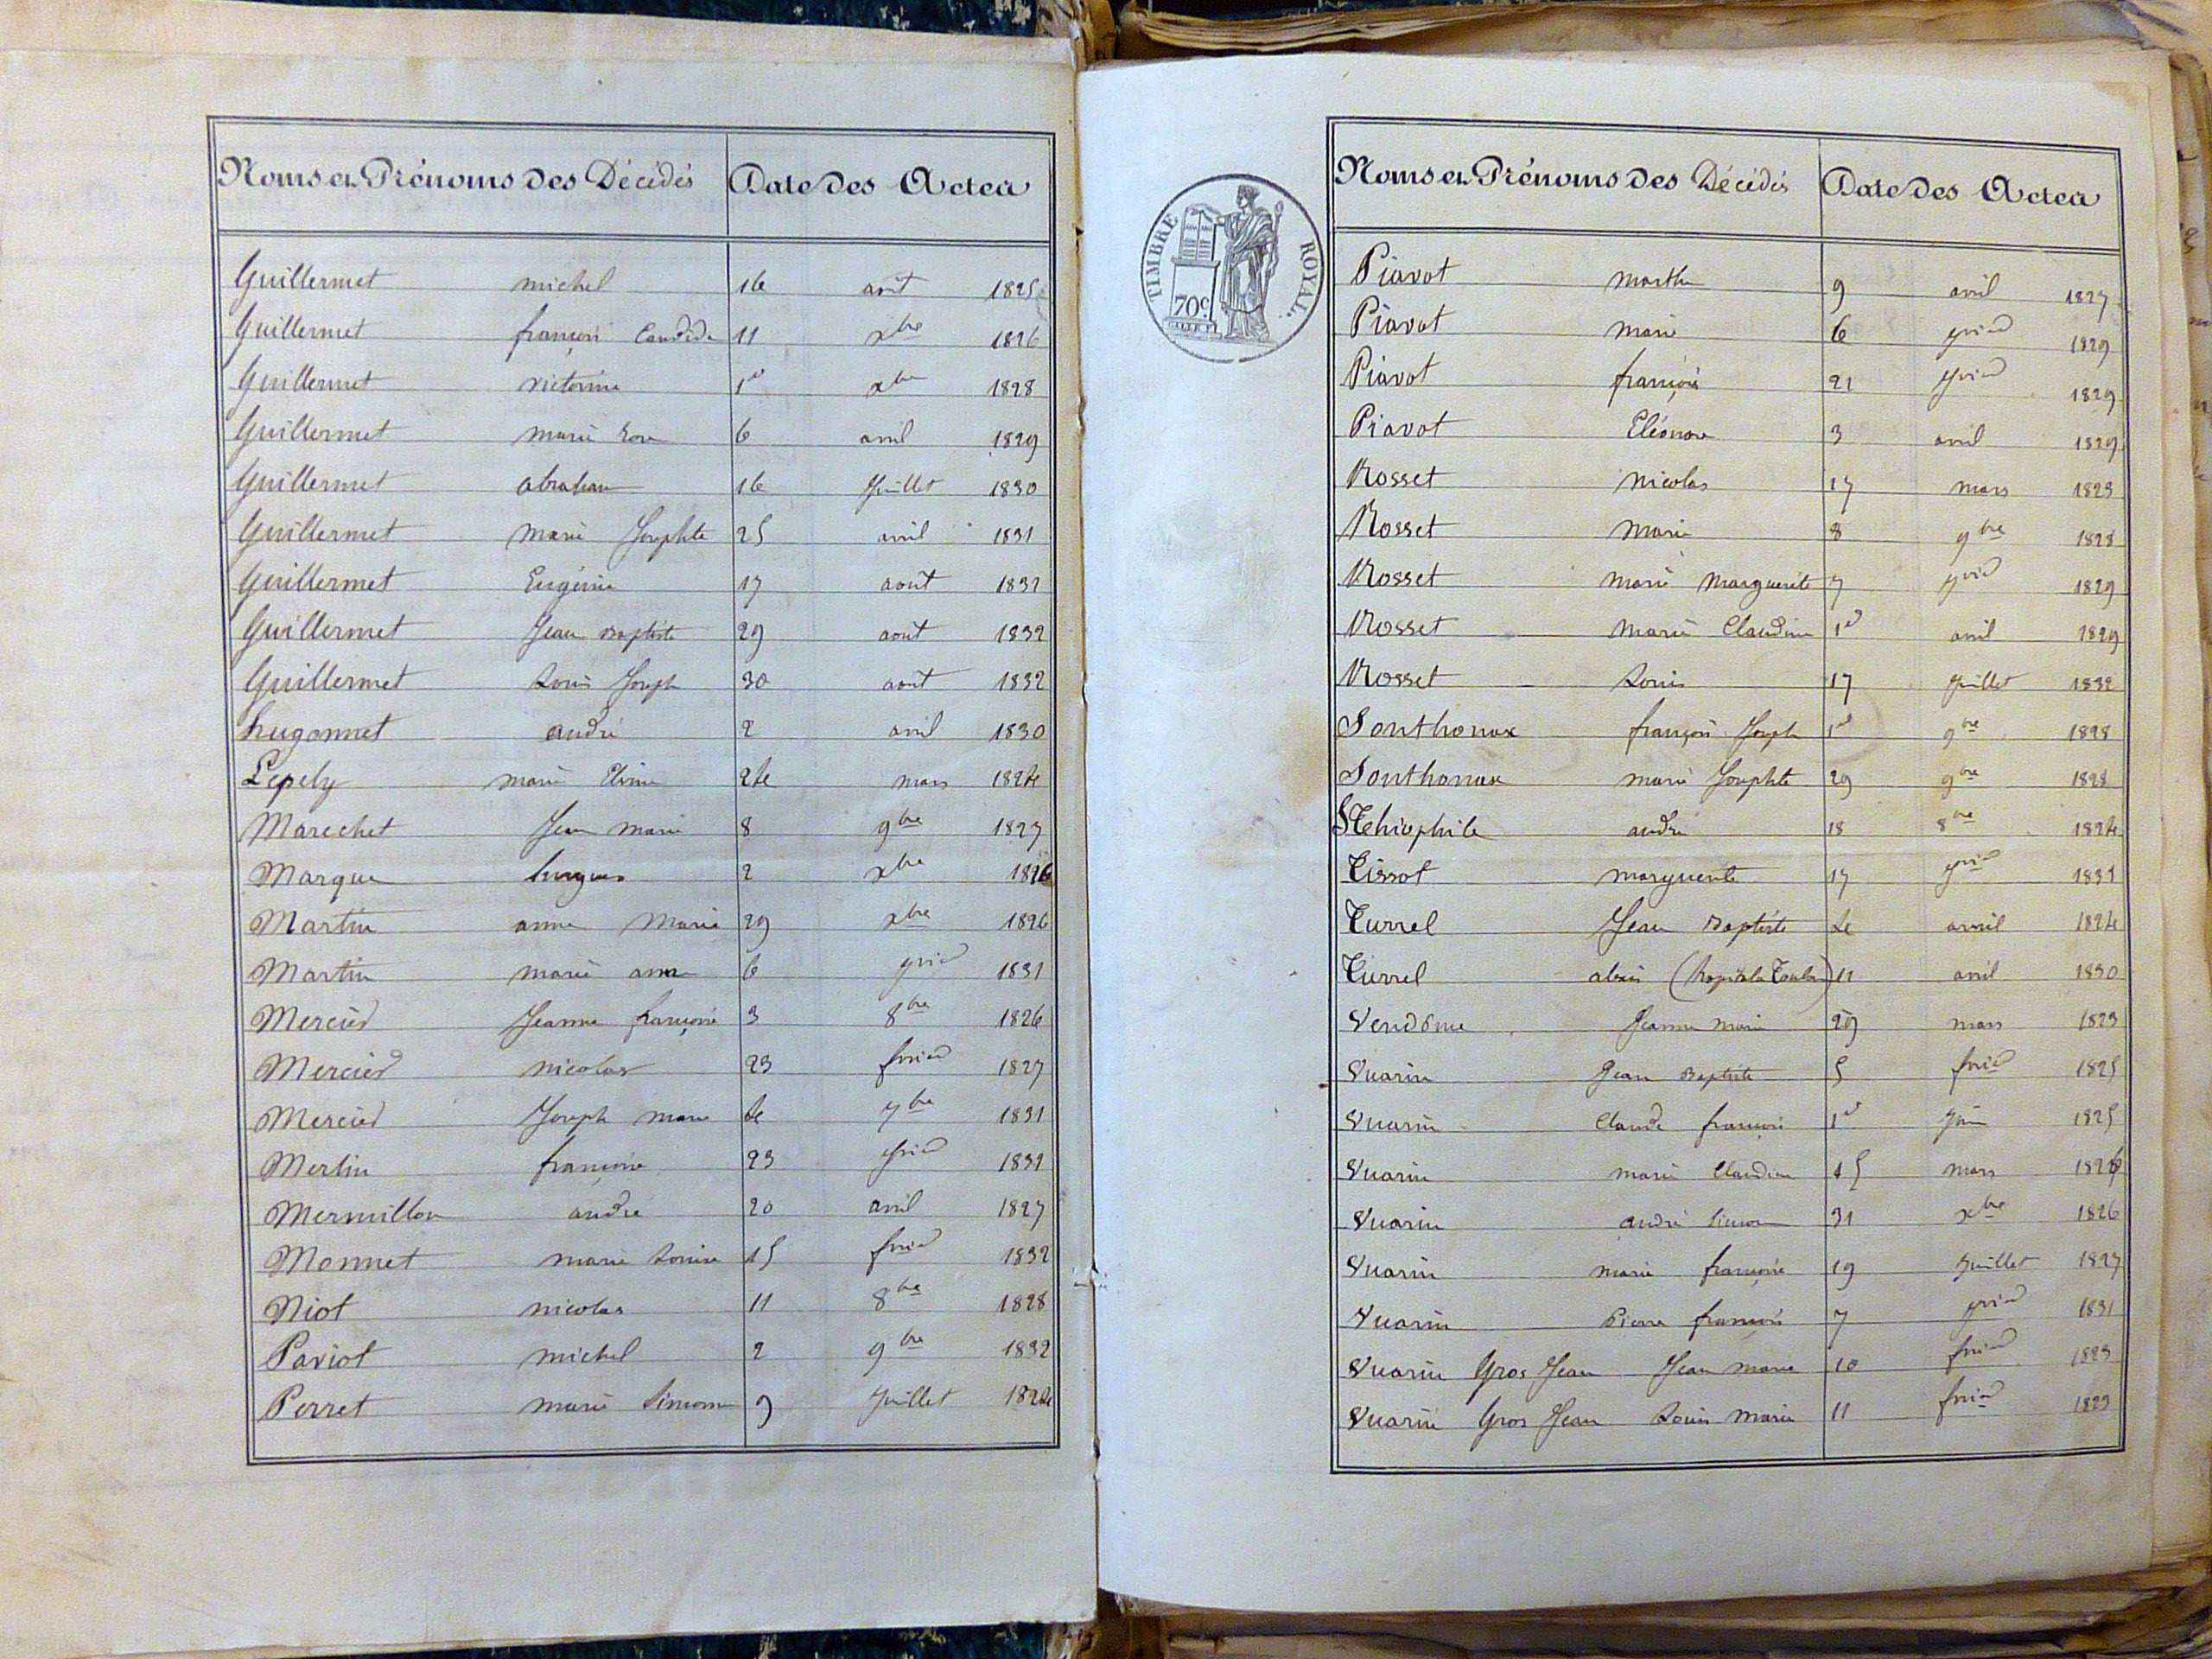 Noms et Prénoms des Décédés Date des Actes
Guillermet michel 16 août 1825
Guillermet françois Candide 11 xbre 1826
Guillermet victorine 1er xbre 1828
Guillermet marie rose 6 avril 1829
Guillermet abraham 16 Juillet 1830
Guillermet marie Josephte 25 avril 1831
Guillermet Eugénie 17 août 1832
Guillermet Jean Baptiste 29 août 1832
Guillermet Louis Joseph 30 août 1832
hugonnet andré 2 avril 1830
Lepely marie 24 mars 1824
Marechet Jean marie 8 9bre 1827
Marque hugues 2 xbre 1826
Martin anne Marie 29 xbre 1826
Martin marie anne 6 jvier 1831
Mercier Jeanne françoise 3 8bre 1826
Mercier nicolas 23 fvrier 1827
Mercier Joseph marie 4 7bre 1831
Merlin françoise 23 jvier 1831
Mermillon andré 20 avril 1827
Monnet marie Louise 15 fvrier 1832
Niot nicolas 11 8bre 1828
Paviot michel 2 9bre 1832
Perret marie Simonne 9 Juillet 1824
TIMBRE ROYAL.
70c
Noms et Prénoms des Décédés Date des Actes
Piavot marthe 9 avril 1827
Piavot marie 6 jvier 1829
Piavot françois 21 jvier 1829
Piavot Eléonore 3 avril 1829
Rosset nicolas 17 mars 1823
Rosset marie 8 9bre 1828
Rosset marie marguerite 7 jvier 1829
Rosset marie Claudine 1er avril 1829
Rosset Louis 17 Juillet 1832
Sonthonax françois Joseph 1er 9bre 1828
Sonthonax marie Josephte 29 9bre 1828
Thiophile andré 18 8bre 1824
Tissot marguerite 17 jvier 1831
Turrel Jean Baptiste 4 avril 1824
Turrel alexis 11 avril 1830
Vendôme Jeanne marie 29 mars 1823
Vuarin Jean Baptiste 5 fvrier 1825
Vuarin Claude françois 1er Juin 1825
Vuarin marie Claudine 15 mars 1826
Vuarin andré Simon 31 xbre 1826
Vuarin marie françoise 19 Juillet 1827
Vuarin Pierre françois 7 jvier 1831
Vuarin Gros Jean Jean marie 10 fvrier 1823
Vuarin Gros Jean Louis marie 11 fvrier 1823